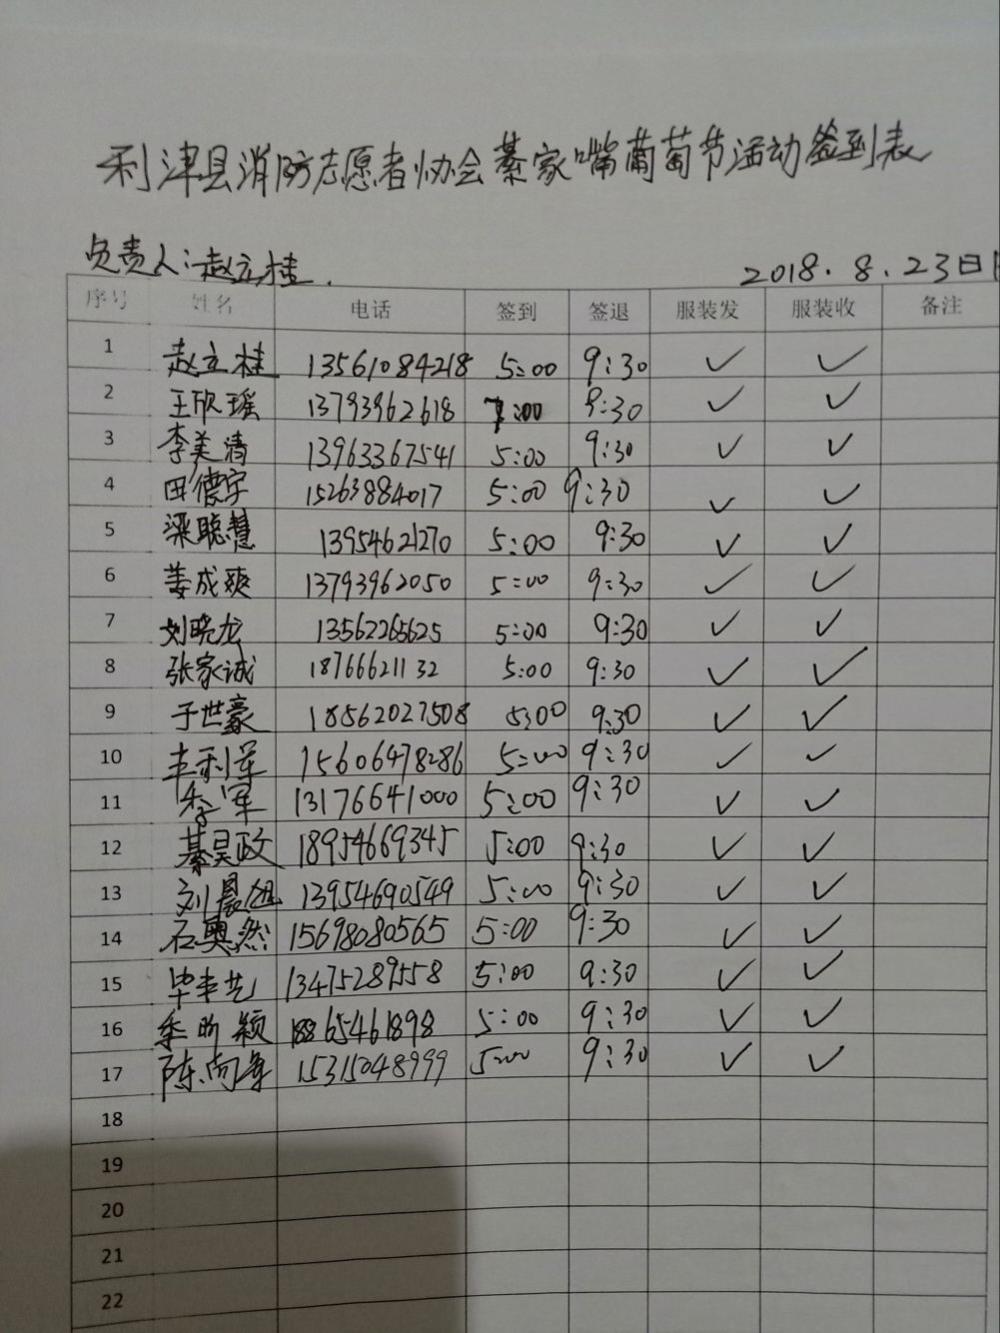 利津县消防志愿者协会綦家嘴葡萄节活动签到表
负责人:赵立桂.
2018.8.23日
序号 姓名 电话 签到 签退 服装发 服装收 备注
1 赵立桂 13561084218 5:00 9:30 ✓ ✓
2 王欣瑶 13793962618 :00 9:30 ✓ ✓
3 李美清 13963367541 5:00 9:30 ✓ ✓
4 田德宇 15263884017 5:00 9:30 ✓ ✓
5 梁聪慧 13954621270 5:00 9:30 ✓ ✓
6 姜成爽 13793962050 5:00 9:30 ✓ ✓
7 刘晓龙 13562265625 5:00 9:30 ✓ ✓
8 张家诚 18766621132 5:00 9:30 ✓ ✓
9 于世豪 18562027508 5:00 9:30 ✓ ✓
10 丰利军 15606478286 5:00 9:30 ✓ ✓
11 李军 13176641000 5:00 9:30 ✓ ✓
12 綦昊政 18954669345 5:00 9:30 ✓ ✓
13 刘晨 13954690549 5:00 9:30 ✓ ✓
14 石奥然 15698080565 5:00 9:30 ✓ ✓
15 毕丰艺 13475289558 5:00 9:30 ✓ ✓
16 季昕颖 18865461898 5:00 9:30 ✓ ✓
17 陈尚 15315048999 5:00 9:30 ✓ ✓
18
19
20
21
22